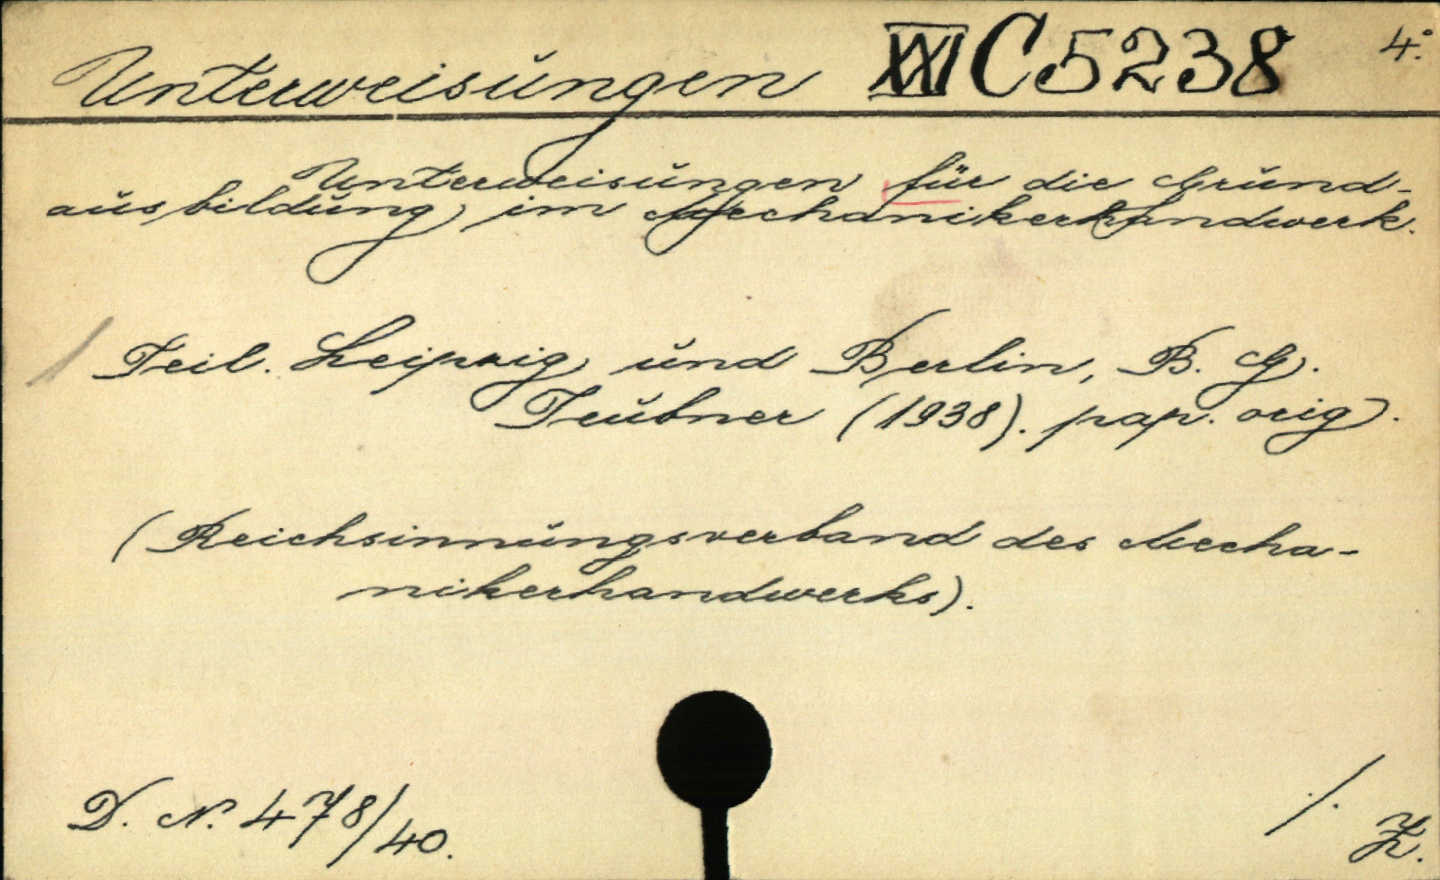 Unterweisungen XXI C 5238 4°.
Unterweisungen für die Grund-
ausbildung im Mechanikerhandwerk.
/ Teil. Leipzig und Berlin, B. G.
Teubner (1938). pap. orig.
(Reichsinnungsverband des Mecha-
nikerhandwerks).
D. N. 478/40.
./.